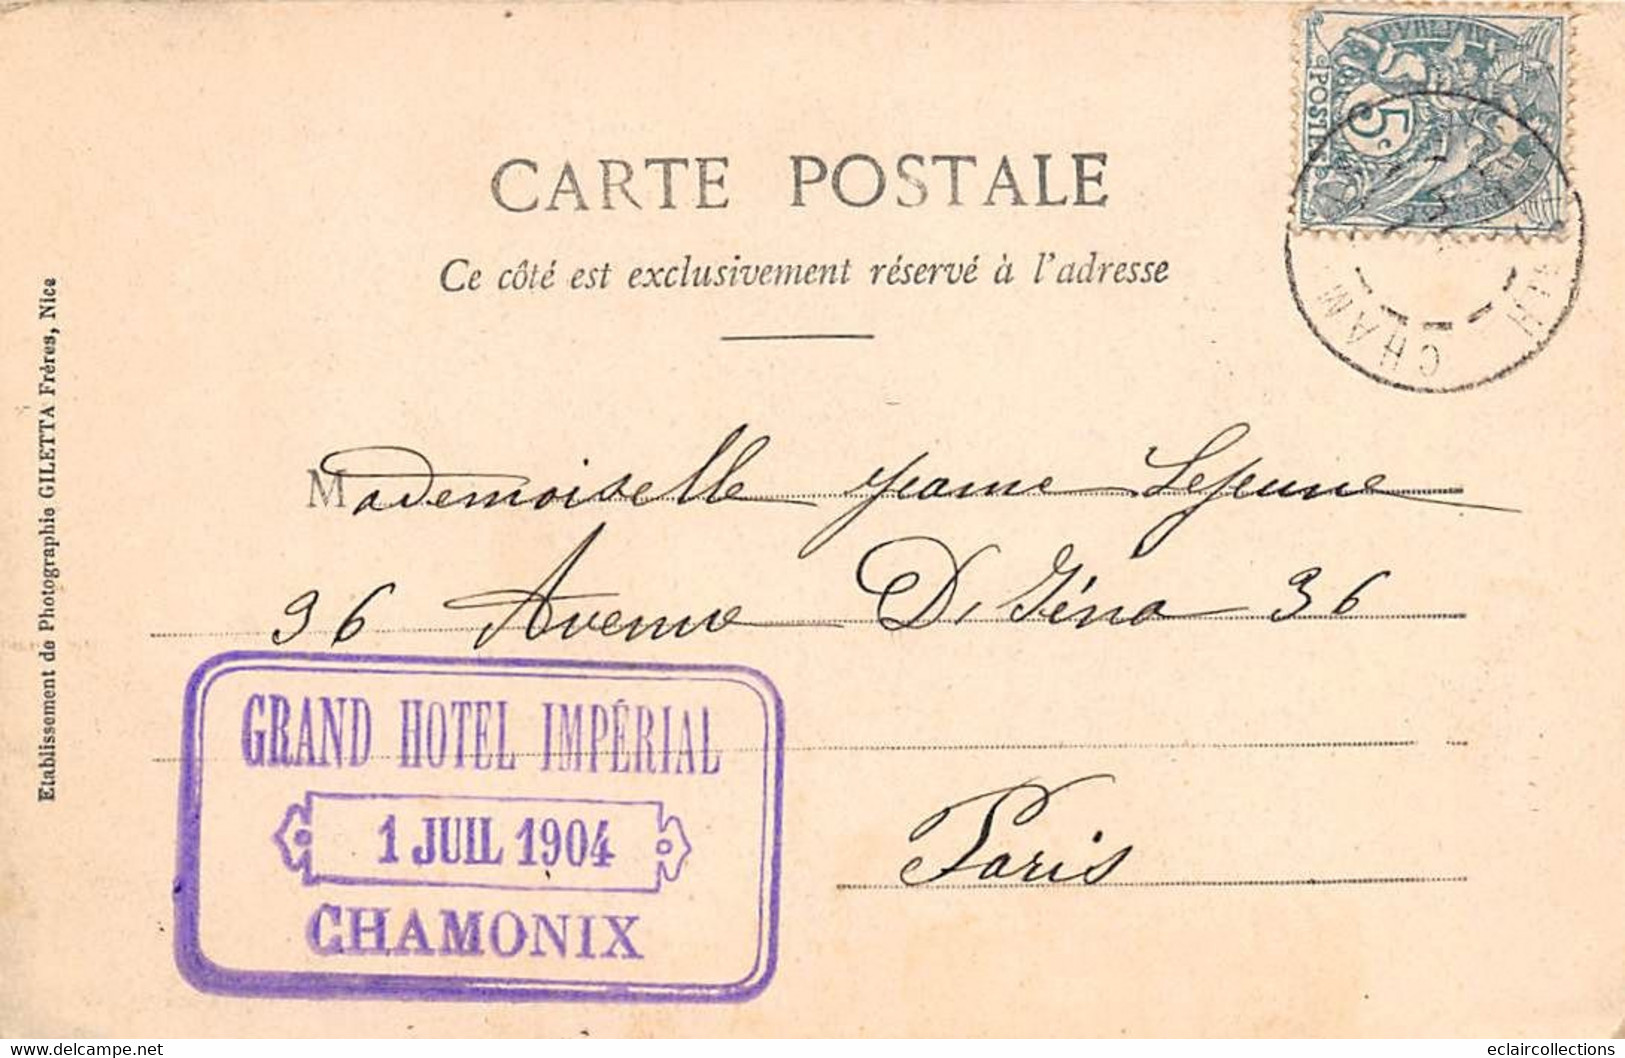 CARTE POSTALE
Ce côté est exclusivement réservé à l'adresse
POSTES
5c
CHAM
Mademoiselle Jeanne Lejeune
36 Avenue D'Iéna 36
Paris
GRAND HOTEL IMPÉRIAL
1 JUIL 1904
CHAMONIX
Etablissement de Photographie GILETTA Frères, Nice
delcampe.net
eclaircollections